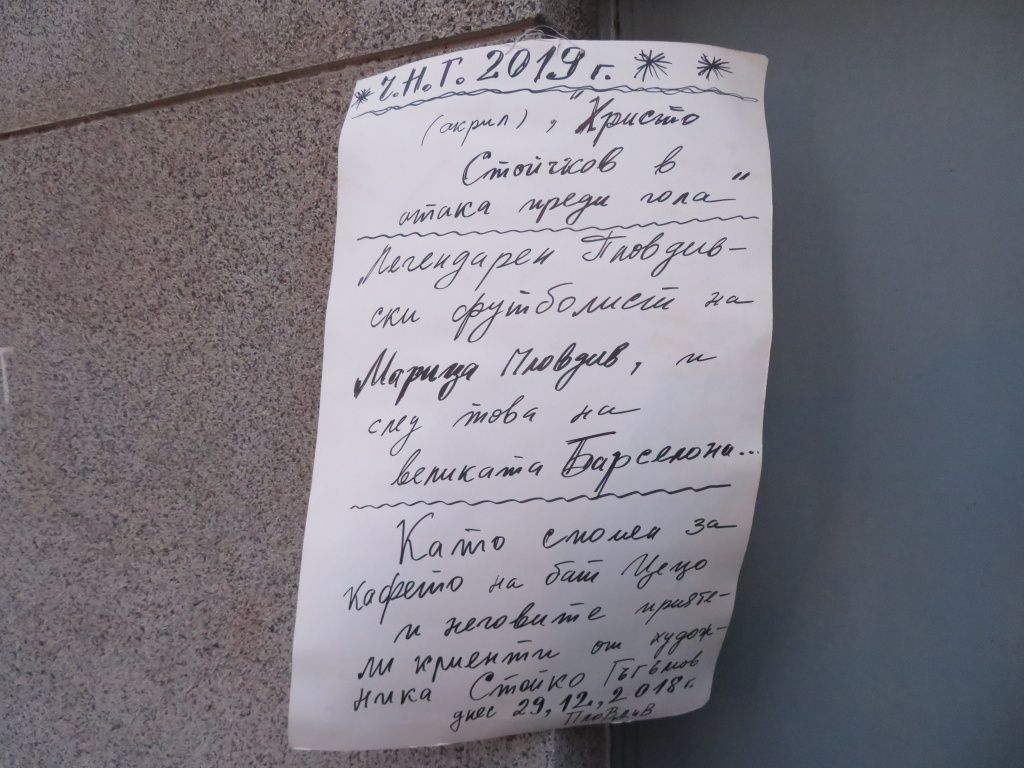 * Ч.Н.Г. 2019 г. * *
(акрил), "Христо
Стоичков в
атака преди гола"
Легендарен Пловдив-
ски футболист на
Марица Пловдив, и
след това на
великата Барселона...
Като спомен за
кафето на бат Цецо
и неговите прияте-
ли клиенти от худож-
ника Стойко Гъгъмов
днес 29, 12., 2018 г.
Пловдив